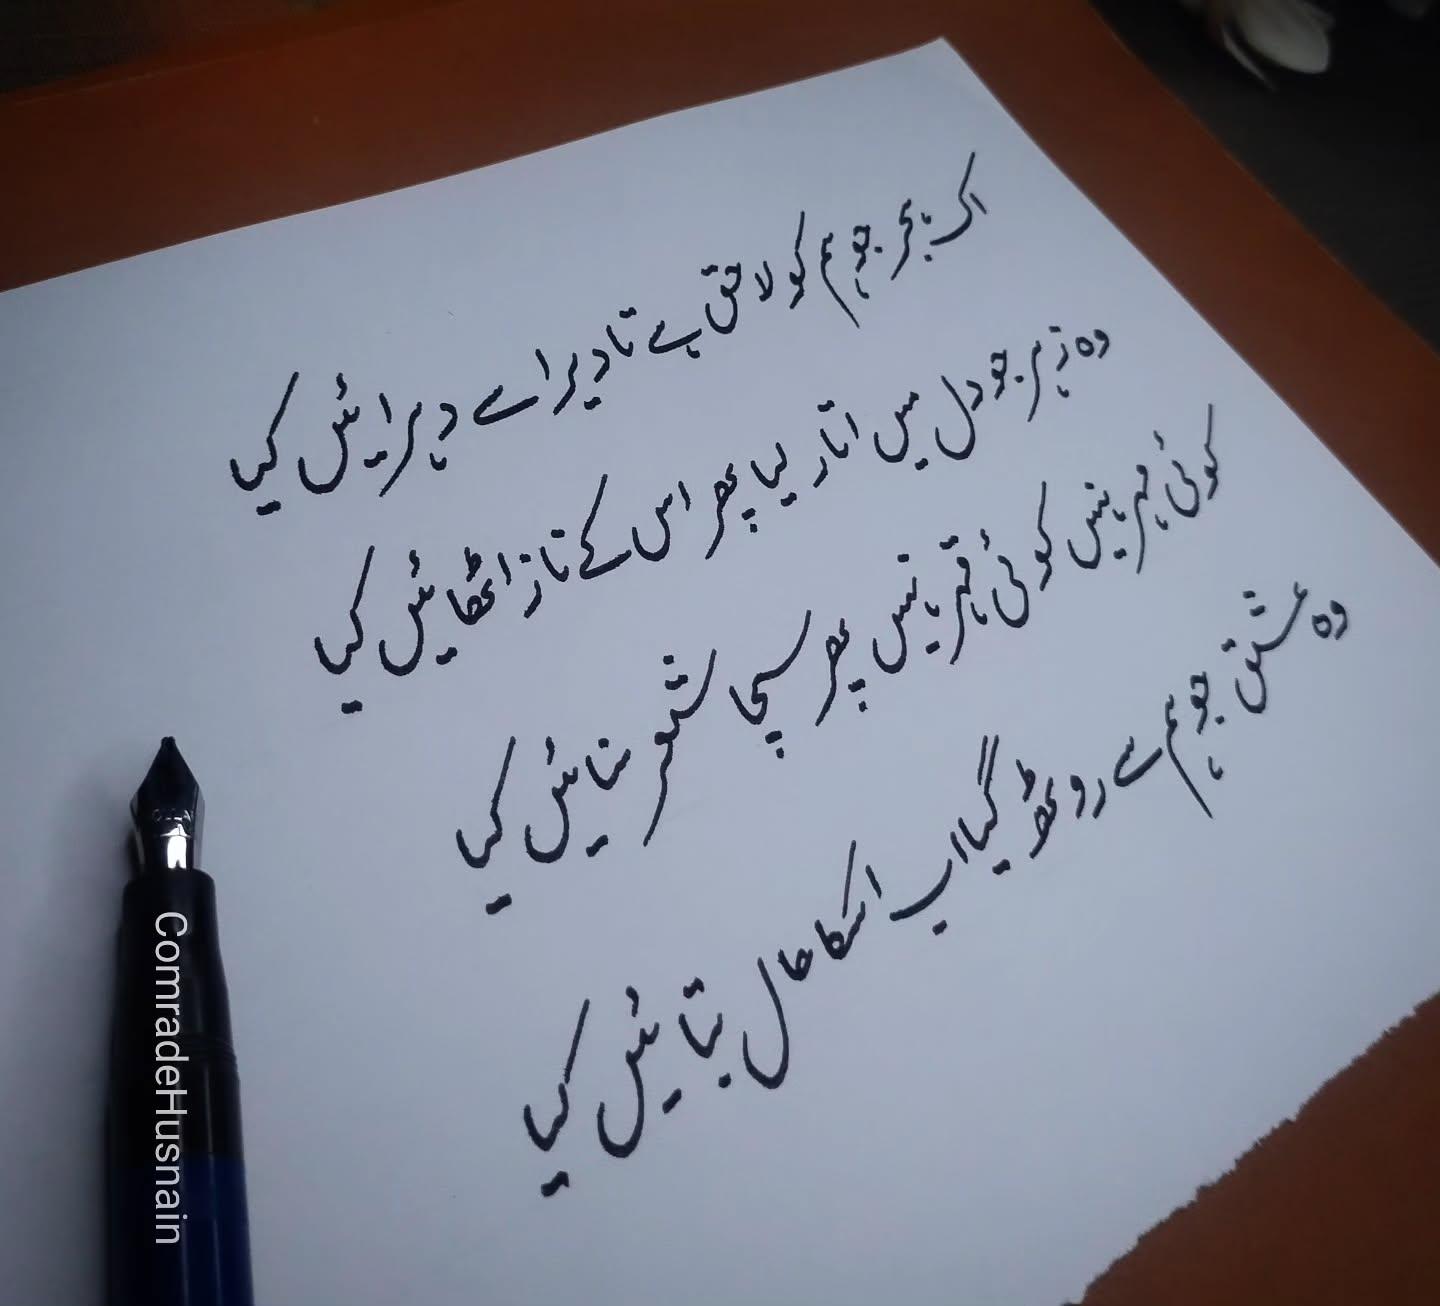 اک ہجر جو ہم کو لاحق ہے تا دیر اسے دہرائیں کیا
وہ زہر جو دل میں اتار لیا پھر اس کے ناز اٹھائیں کیا
کوئی مہر نہیں کوئی قہر نہیں پھر سچا شعر سنائیں کیا
وہ عشق جو ہم سے روٹھ گیا اب اسکا حال بتائیں کیا
ComradeHusnain